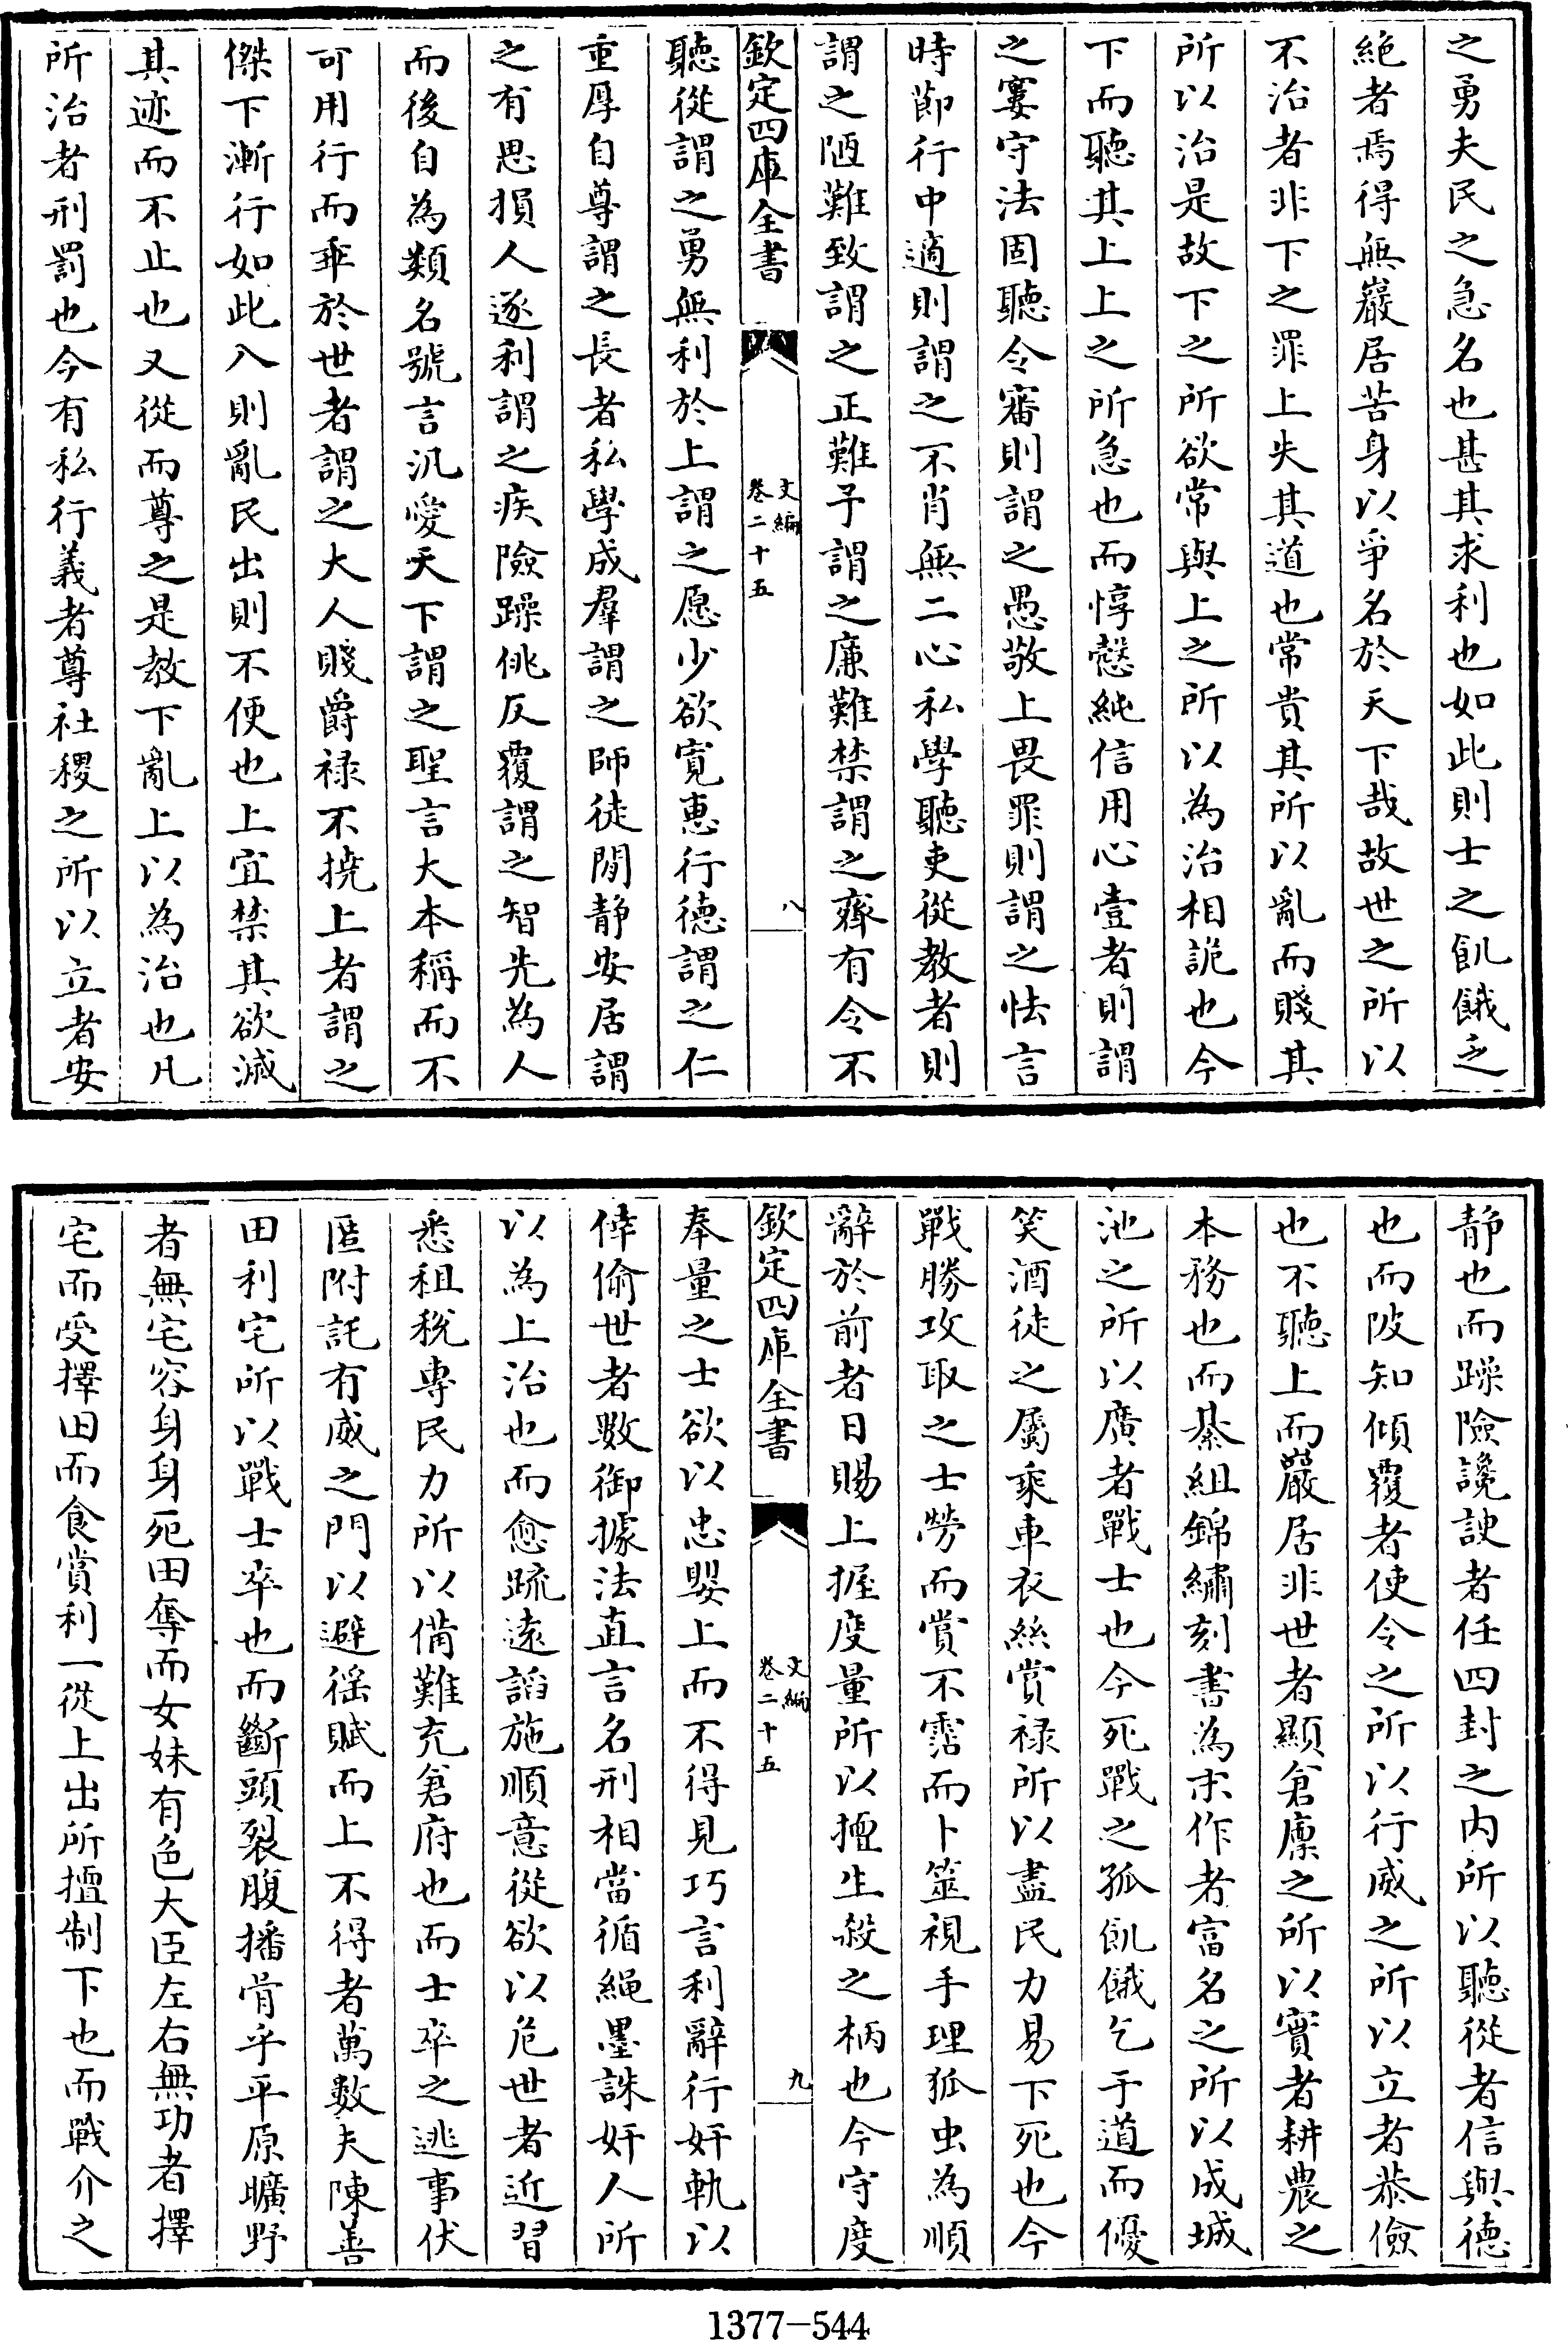 之勇夫民之急名也甚其求利也如此則士之飢餓乏
絶者焉得無巖居苦身以爭名於天下哉故世之所以
不治者非下之罪上失其道也常貴其所以亂而賤其
所以治是故下之所欲常與上之所以為治相詭也今
下而聽其上上之所急也而惇慤純信用心壹者則謂
之窶守法固聽令審則謂之愚敬上畏罪則謂之怯言
時節行中適則謂之不肖無二心私學聽吏從教者則
謂之陋難致謂之正難予謂之廉難禁謂之齊有令不
欽定四庫全書
文編
卷二十五
八
聽從謂之勇無利於上謂之愿少欲寛惠行德謂之仁
重厚自尊謂之長者私學成羣謂之師徒閒静安居謂
之有思損人逐利謂之疾險躁佻反覆謂之智先為人
而後自為類名號言汎愛天下謂之聖言大本稱而不
可用行而乖於世者謂之大人賤爵祿不撓上者謂之
傑下漸行如此入則亂民出則不便也上宜禁其欲滅
其迹而不止也又從而尊之是教下亂上以為治也凡
所治者刑罰也今有私行義者尊社稷之所以立者安
静也而躁險讒諛者任四封之内所以聽從者信與德
也而陂知傾覆者使令之所以行威之所以立者恭儉
也不聽上而巖居非世者顯倉廩之所以實者耕農之
本務也而綦組錦繡刻書為末作者富名之所以成城
池之所以廣者戰士也今死戰之孤飢餓乞于道而優
笑酒徒之屬乘車衣絲賞祿所以盡民力易下死也今
戰勝攻取之士勞而賞不霑而卜筮視手理狐虫為順
辭於前者日賜上握度量所以擅生殺之柄也今守度
欽定四庫全書
文編
卷二十五
九
奉量之士欲以忠嬰上而不得見巧言利辭行奸軌以
倖偷世者數御據法直言名刑相當循繩墨誅奸人所
以為上治也而愈疏遠謟施順意從欲以危世者近習
悉租稅專民力所以備難充倉府也而士卒之逃事伏
匿附託有威之門以避徭賦而上不得者萬數夫陳善
田利宅所以戰士卒也而斷頭裂腹播骨乎平原曠野
者無宅容身身死田奪而女妹有色大臣左右無功者擇
宅而受擇田而食賞利一從上出所擅制下也而戰介之
1377-544